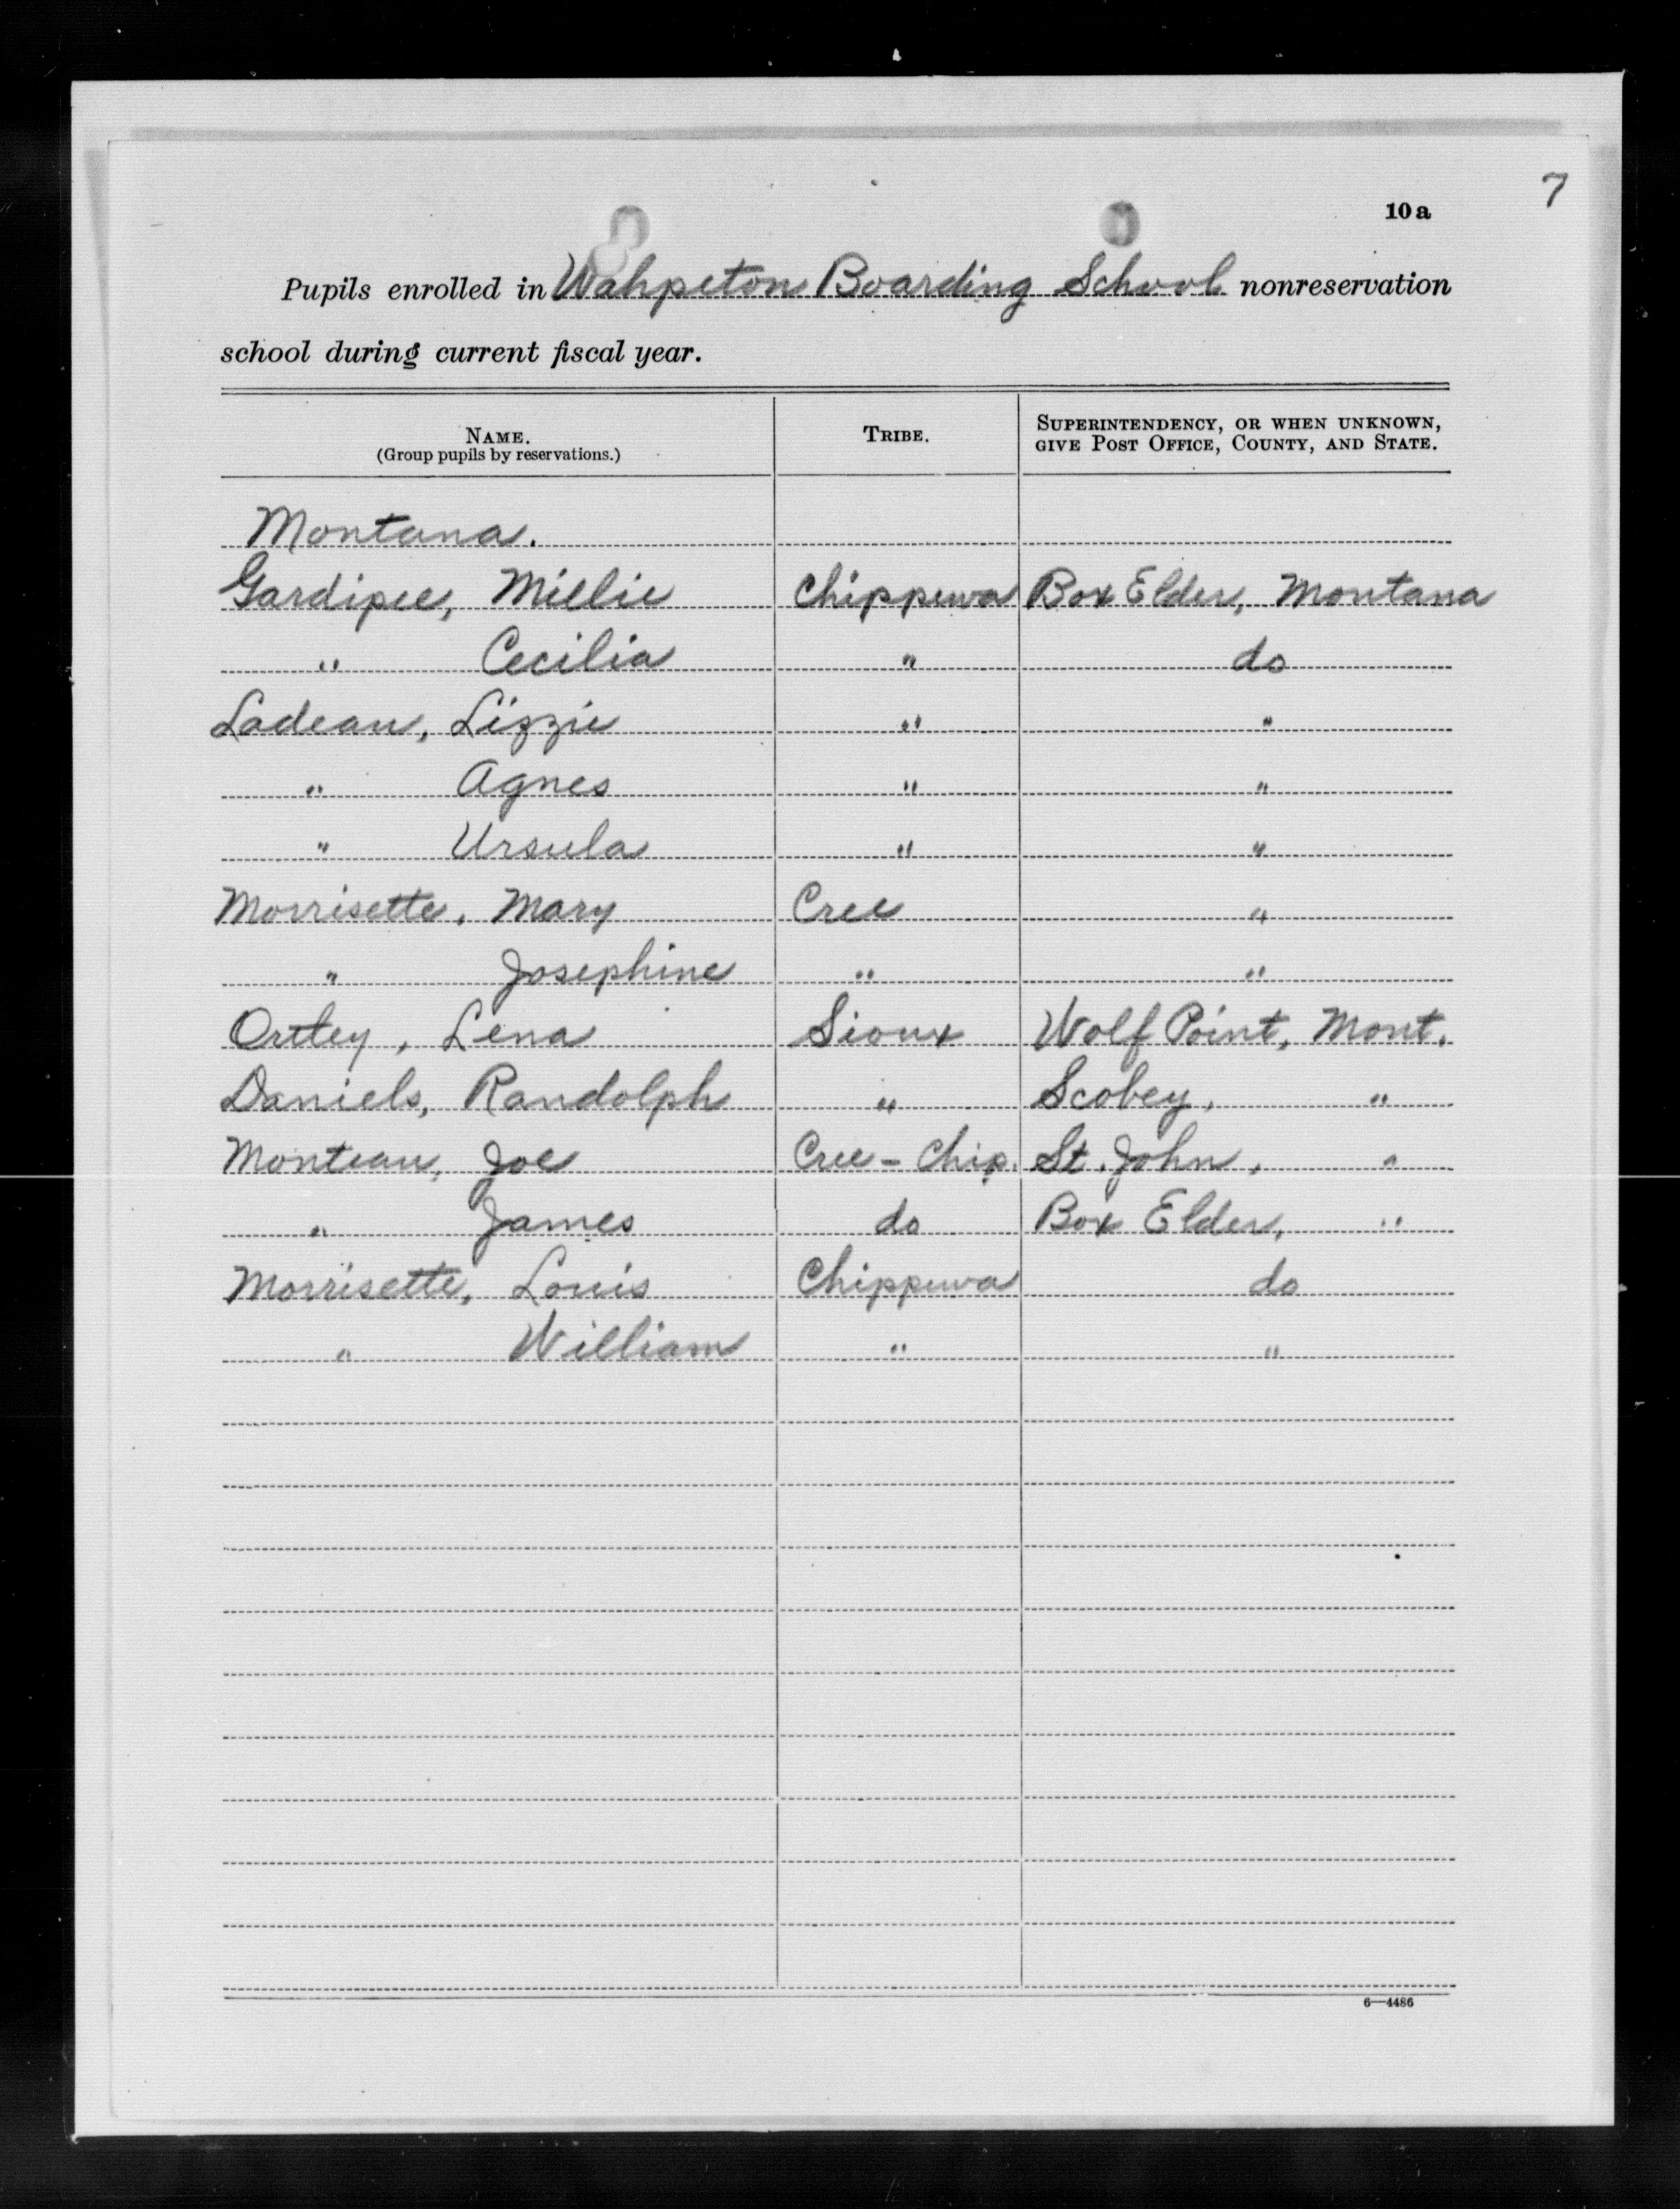 7
10 a
Pupils enrolled in Wahpeton Boarding School nonreservation
school during current fiscal year.
NAME. TRIBE. SUPERINTENDENCY, OR WHEN UNKNOWN,
(Group pupils by reservations.) GIVE POST OFFICE, COUNTY, AND STATE.
Montana.
Gardipee, Millie Chippewa Box Elder, Montana
" Cecilia " do
Ladeau, Lizzie " "
" Agnes " "
" Ursula " "
Morrisette, Mary Cree "
" Josephine " "
Ortley, Lena Sioux Wolf Point, Mont.
Daniels, Randolph " Scobey, "
Monteau, Joe Cree - Chip. St. John, "
" James do Box Elder, "
Morrisette, Louis Chippewa do
" William " "
6—4486